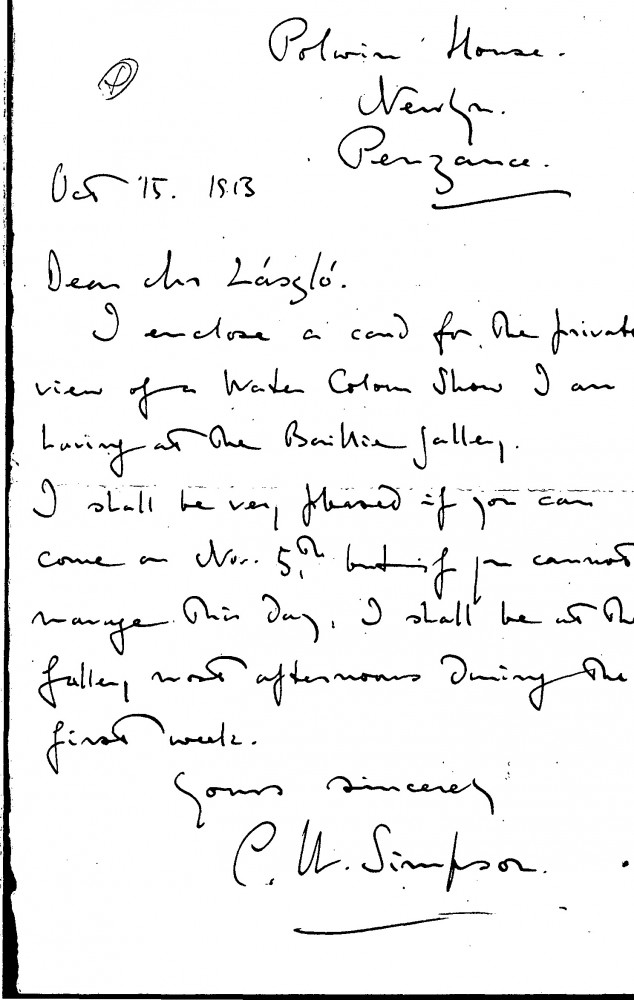 Polwin House.
Newlyn.
Penzance.
Oct 15. 1913
Dear Mr László.
I enclose a card for the private
view of a Water Colour Show I am
having at the Baillie Gallery.
I shall be very pleased if you can
come on Nov. 5th but if you cannot
manage this day, I shall be at the
Gallery most afternoons during the
first week.
Yours sincerely
C. W. Simpson.